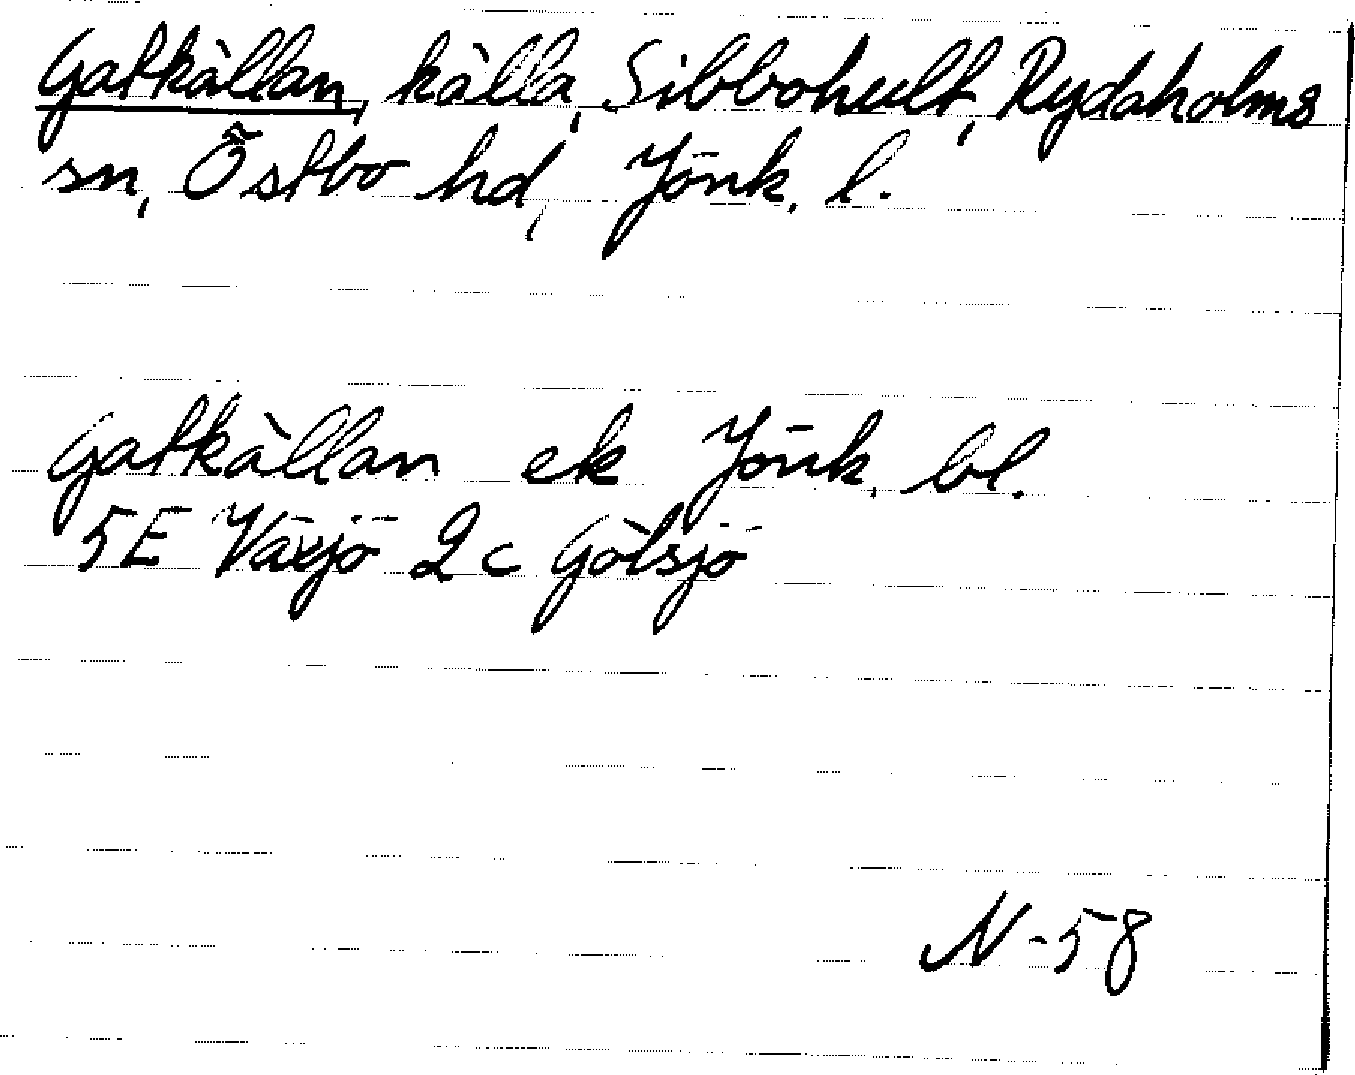 Gatkällan, källa, Sibbohult, Rydaholms
sn, Östbo hd, Jönk. l.
Gatkällan ek Jönk. bl.
5E Växjö 2c Götsjö
N-58